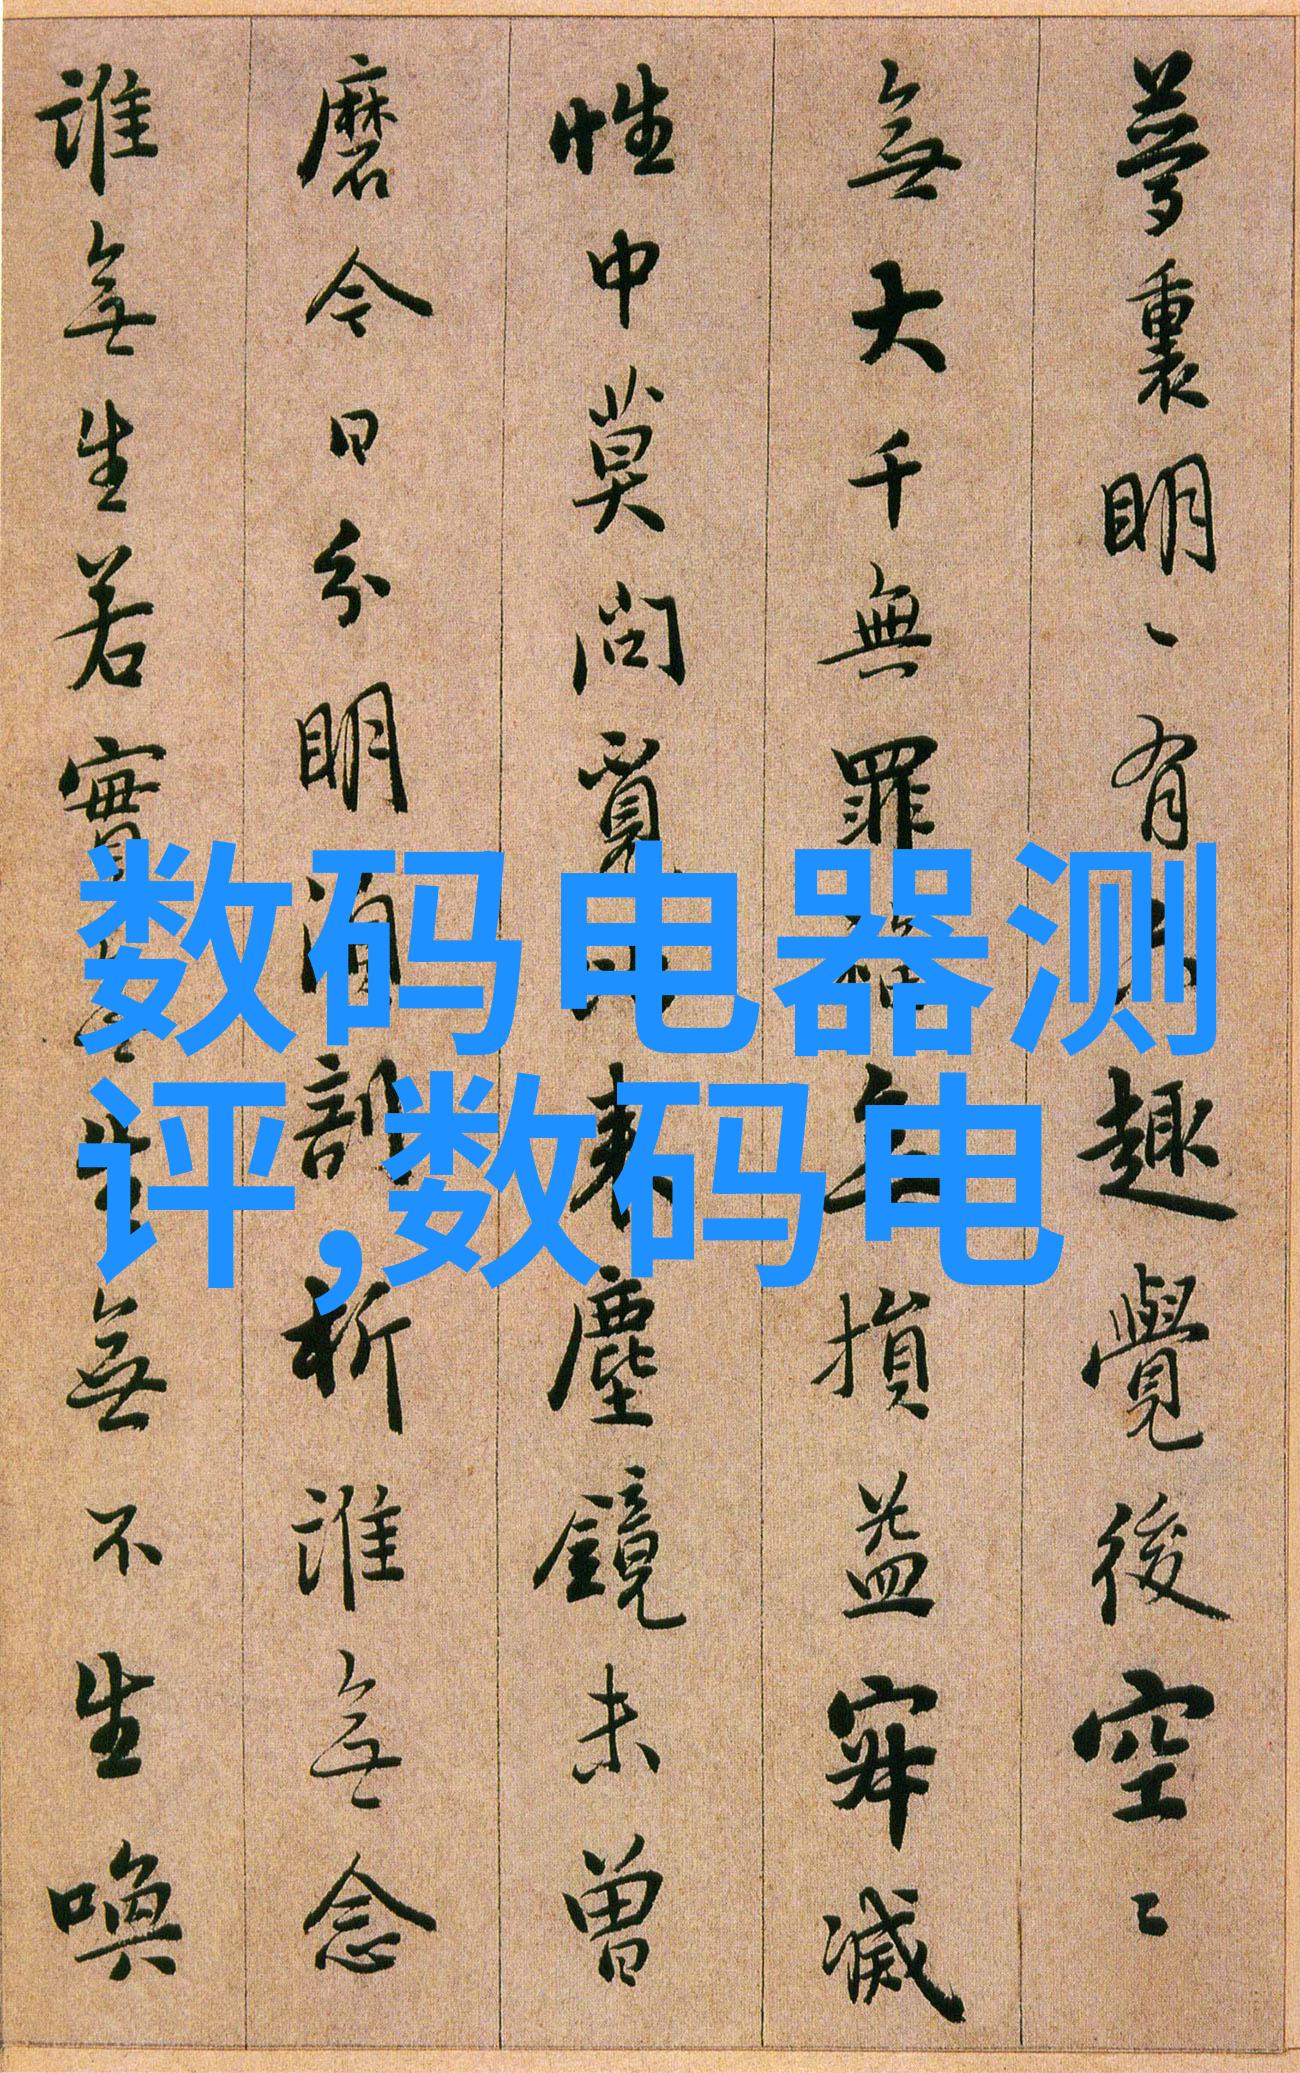 夢裏明丶有趣覺後空〻
無大千無罪損益寂滅
性中莫問覓來塵鏡未曾
磨今日分明剖析誰無念
誰無生若實生無不生喚
数码电器测
评,数码电